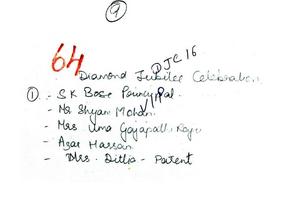 9
64
DJC 16
Diamond Jubilee Celebration
① - S K Bose Principal
- Mr Shyam Mohan VIP
- Mrs Uma Gajapathi Raju
- Azar Hassan
- Mrs. Ditlia - Parent